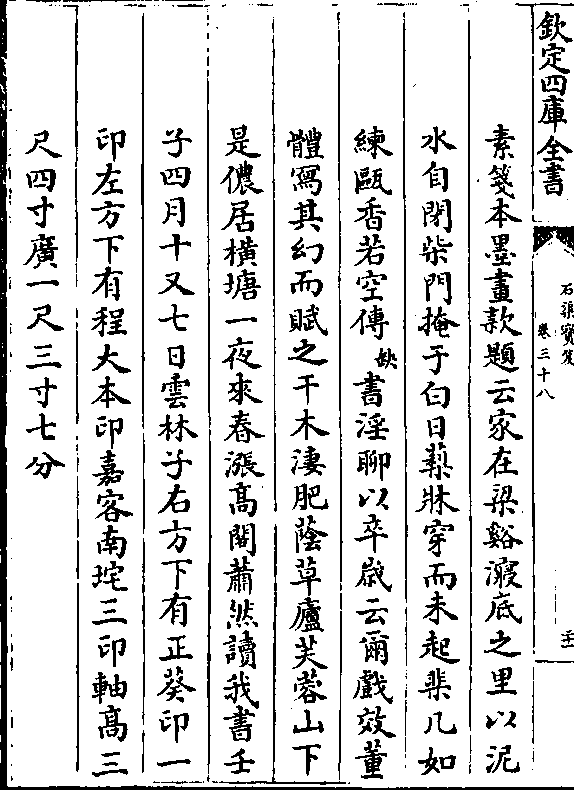 欽定四庫全書
石渠寶笈
卷三十八
素箋本墨畫款題云家在梁谿澱底之里以泥
水自閉柴門掩于白日藜牀穿而未起棐几如
練甌香若空傳缺書淫聊以卒歲云爾戲效董
體寫其幻而賦之千木淒肥蔭草廬芙蓉山下
是儂居橫塘一夜來春漲高閣蕭然讀我書壬
子四月十又七日雲林子右方下有正葵印一
印左方下有程大本印嘉客南垞三印軸高三
尺四寸廣一尺三寸七分